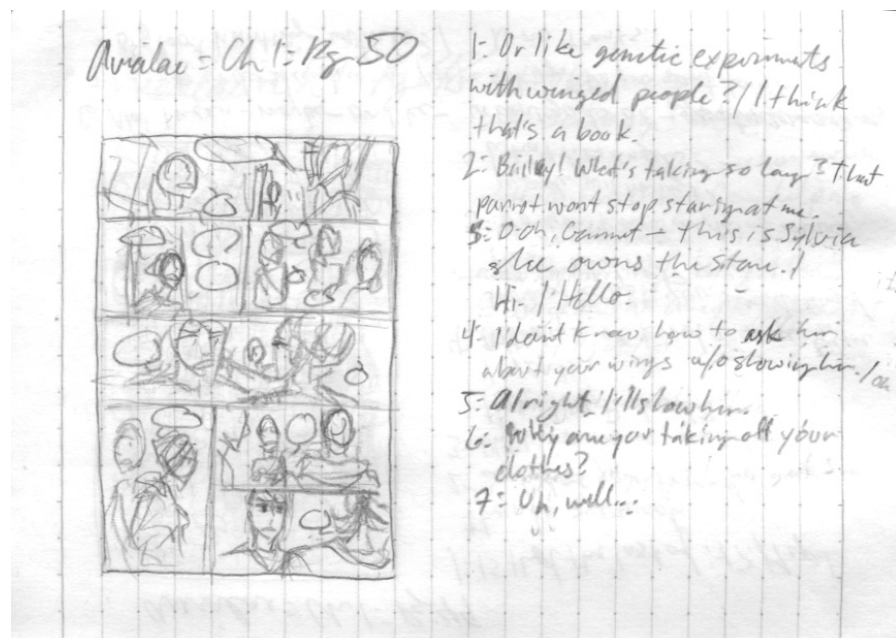 Avialae = Ch 1 = Pg 50
1: Or like genetic experiments
with winged people? / I think
that's a book.
2: Bailey! What's taking so long? That
parrot wont stop staring at me.
3: O-oh, Gannet - this is Sylvia
she owns the store. /
Hi. / Hello.
4: I dont know how to ask her
about your wings w/o showing her. /
5: Alright I'll show her.
6: Why are you taking off your
clothes?
7: Uh, well...